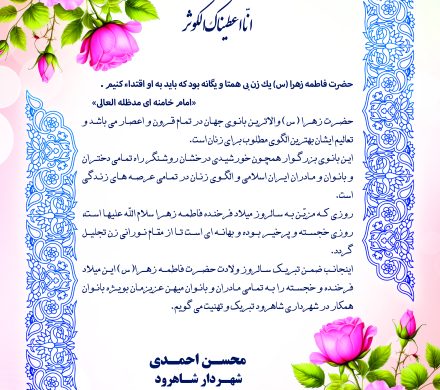 انّا اعطیناک الکوثر
حضرت فاطمه زهرا (س) یك زن بی همتا و یگانه بود که باید به او اقتداء کنیم .
«امام خامنه ای مدظله العالی»
حضرت زهرا (س) والاترین بانوی جهان در تمام قرون و اعصار می باشد و
تعالیم ایشان بهترین الگوی مطلوب برای زنان است.
این بانوی بزرگوار همچون خورشیدی درخشان روشنگر راه تمامی دختران
و بانوان و مادران ایران اسلامی و الگوی زنان در تمامی عرصه های زندگی
است.
روزی که مزیّن به سالروز میلاد فرخنده فاطمه زهرا سلام الله علیها است،
روزی خجسته و پرخیر بوده و بهانه ای است تا از مقام نورانی زن تجلیل
گردد.
اینجانب ضمن تبریک سالروز ولادت حضرت فاطمه زهرا(س) این میلاد
فرخنده و خجسته را به تمامی مادران و بانوان میهن عزیزمان بویژه بانوان
همکار در شهرداری شاهرود تبریک و تهنیت می گویم.
محسن احمدی
شهردار شاهرود